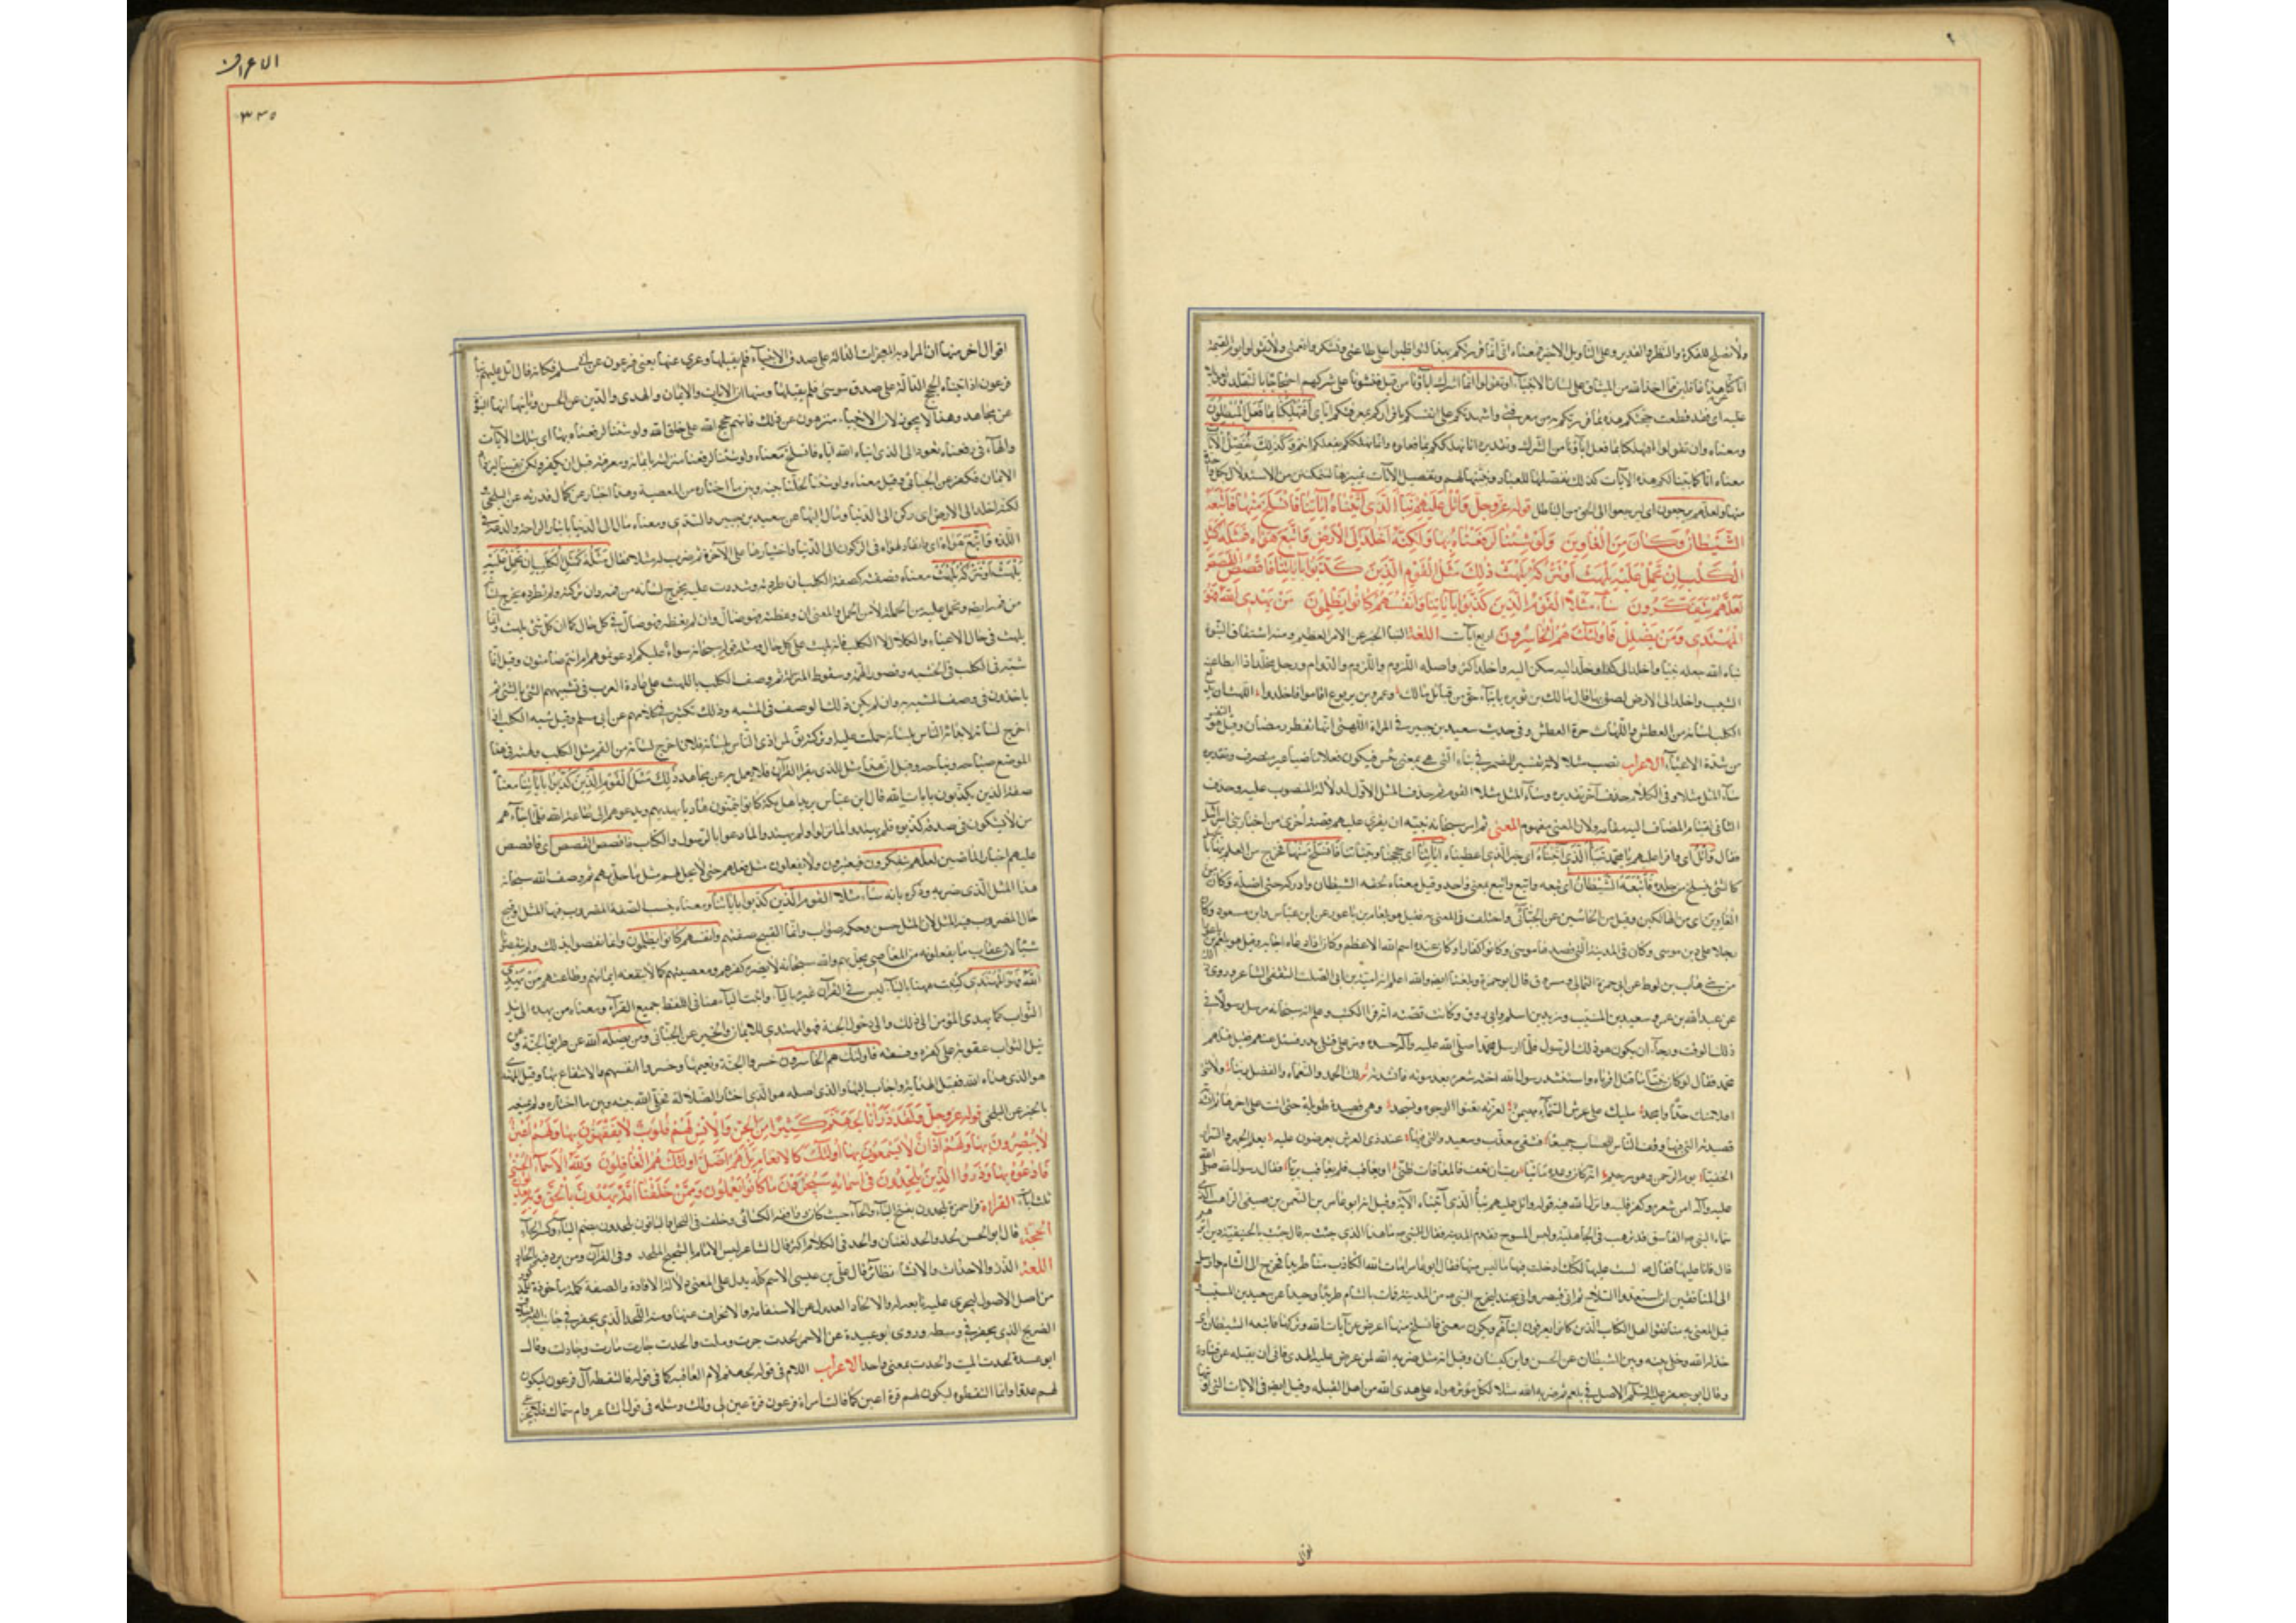 ولا تصلح للفكرة والنظر والتدبر وعلى التأويل الاخير فمعناه انى انما قررتكم بهذا لتواظبوا على طاعتى وتشكروا نعمتى ولا تقولوا يوم القيمة
انا كنا عن هذا غافلين عما اخذ الله من الميثاق على لسان الانبياء او تقولوا انما اشرك اباؤنا من قبل فنشونا على شركهم احتجاجا بالتقليد
عليه اى فقد قطعت حجتكم هذه بما قررتكم به من معرفتى واشهدتكم على انفسكم باقراركم بمعرفتكم اياى افتهلكنا بما فعل المبطلون
ومعناه وان تقولوا افتهلكنا بما فعل آباؤنا من الشرك وتقديره انا لا نهلككم بما فعلوه وانما نهلككم بفعلكم انتم وكذلك نفصل الآيات
معناه انا كما بينا لكم هذه الآيات كذلك نفصلها للعباد ونبينها لهم وتفصيل الآيات تمييزها ليتمكن من الاستدلال بكل واحدة
منها ولعلهم يرجعون اى ليرجعوا الى الحق من الباطل قوله عز وجل واتل عليهم نبأ الذى آتيناه آياتنا فانسلخ منها فاتبعه
الشيطان وكان من الغاوين ولو شئنا لرفعناه بها ولكنه اخلد الى الارض واتبع هواه فمثله كمثل
الكلب ان تحمل عليه يلهث او تتركه يلهث ذلك مثل القوم الذين كذبوا بآياتنا فاقصص القصص
لعلهم يتفكرون ساء مثلا القوم الذين كذبوا بآياتنا وانفسهم كانوا يظلمون من يهدى الله فهو
المهتدى ومن يضلل فاولئك هم الخاسرون اربع آيات اللغة النبأ الخبر عن الامر العظيم ومنه اشتقاق النبوة
نباه الله جعله نبيا واخلد الى كذا وخلد اليه سكن اليه واخلد اكثر واصله اللزوم والدوام ورجل مخلد اذا ابطأ عنه
الشيب واخلد الى الارض لصق بها قال مالك بن نويره بابناء حى من قبائل مالك وعمرو بن يربوع اقاموا فاخلدوا
الكلب لسانه من العطش واللهاث حرة العطش وفى حديث سعيد بن جبير فى المراة اللهثى انها تفطر رمضان وقيل هو النفس
من شدة الاعياء الاعراب نصب مثلا لانه تفسير للضمير فى ساء الذى هى بمعنى بئس فيكون فعلا ماضيا غير متصرف وتقديره
ساء المثل مثلا وفى الكلام حذف آخر تقديره وساء المثل مثلا مثل القوم ثم حذف المثل الاول لدلالة المنصوب عليه وحذف
الثانى لقيام المضاف اليه مقامه ولان المعنى مفهوم المعنى ثم امر سبحانه نبيه ان يقرئ عليهم قصة اخرى من اخبار بنى اسرائيل
فقال واتل اى واقرأ عليهم يا محمد نبأ الذى آتيناه اى خبر الذى اعطيناه آياتنا اى حججنا وبيناتنا فانسلخ منها فخرج من العلم بها
كالشئ ينسلخ من جلده فاتبعه الشيطان اى تبعه واتبع واتبع بمعنى واحد وقيل معناه لحقه الشيطان وادركه حتى اضله فكان من
الغاوين اى من الهالكين وقيل من الخائبين عن الجبائى واختلف فى المعنى به فقيل هو بلعام بن باعور عن ابن عباس وابن مسعود وكان
رجلا على دين موسى وكان فى المدينة التى قصدها موسى وكانوا كفارا وكان عنده اسم الله الاعظم وكان اذا دعاه اجابه وقيل هو بلعم بن باعورا
من بنى هاب بن لوط عن ابى حمزة الثمالى ومسروق قال ابو حمزة وبلغنا ايضا والله اعلم انه امية بن ابى الصلت الثقفى الشاعر وروى ذلك
عن عبد الله بن عمر وسعيد بن المسيب وزيد بن اسلم وابى روق وكانت قصته انه قرأ الكتب وعلم انه سبحانه مرسل رسولا فى
ذلك الوقت ورجا ان يكون هو ذلك الرسول فلما ارسل محمد صلى الله عليه وآله حسده ومر على قتلى بدر فسئل عنهم فقيل قتلهم
محمد فقال لو كان نبيا ما قتل اقرباءه واستنشد رسول الله اخته شعره بعد موته فانشدته لك الحمد والنعماء والفضل ربنا ولا شئ
اعلى منك جدا وامجد مليك على عرش السماء مهيمن لعزته تعنوا الوجوه وتسجد وهى قصيدة طويلة حتى اتت على آخرها ثم انشدته
قصيدته التى فيها وقف الناس للحساب جميعا فشقى معذب وسعيد والتى فيها عند ذى العرش يعرضون عليه يعلم الجهر والسرار
الخفيا يوم نأتى الرحمن وهو رحيم انه كان وعده ماتيا رب ان تعف فالمعافاة ظنى او تعاقب فلم تعاقب بريا فقال رسول الله صلى الله
عليه وآله امن شعره وكفر قلبه وانزل الله فيه قوله واتل عليهم نبأ الذى آتيناه الآية وقيل انه ابو عامر بن النعمن بن صيفى الراهب الذى
سماه النبى الفاسق قد ترهب فى الجاهلية ولبس المسوح فقدم المدينة فقال للنبى ما هذا الذى جئت به قال جئت بالحنيفية دين ابرهيم
قال فانا عليها فقال لست عليها لكنك ادخلت فيها ما ليس منها فقال ابو عامر امات الله الكاذب منا طريدا فخرج الى الشام وارسل
الى المنافقين ان استعدوا السلاح ثم اتى قيصر واتى بجند ليخرج النبى من المدينة فمات بالشام طريدا وحيدا عن سعيد بن المسيب
قيل المعنى به منافقوا اهل الكتاب الذين كانوا يعرفون ابناءهم ويكون معنى فانسلخ منها اعرض عن آيات الله وتركها فاتبعه الشيطان اى
خذله الله وخلى بينه وبين الشيطان عن الحسن وابن كيسان وقيل انه مثل ضربه الله لمن عرض عليه الهدى فابى ان يقبله عن قتادة
وقال ابو جعفر عليه السلام الاصل فى بلعم ثم ضربه الله مثلا لكل مؤثر هواه على هدى الله من اهل القبلة وقيل ايضا فى الآيات التى اوتيها
اقوال
الاعراف
٣٢٥
اقوال اخر منها ان المراد به المعجزات الدالة على صدق الانبياء فلم يقبلها وعرى عنها يعنى فرعون فكانه قال اتل عليهم نبأ
فرعون اذ آتيناه الحجج الدالة على صدق موسى فلم يقبلها ومنها ان الآيات والايمان والهدى والدين عن الحسن ومنها انها النبوة
عن مجاهد وهذا لا يجوز لان الانبياء منزهون عن ذلك فانهم حجج الله على خلقه ولو شئنا لرفعناه بها اى بتلك الآيات
والهاء فى رفعناه يعود الى الذى آتاه الله آياته فانسلخ معناه ولو شئنا لرفعنا منزلته بايمانه ومعرفته قبل ان يكفر ولكن بقيناه ليزداد
الايمان فكفر عن الجبائى وقيل معناه ولو شئنا لحلنا بينه وبين ما اختاره من المعصية وهذا اخبار عن كمال قدرته عن البلخى
لكنه اخلد الى الارض اى ركن الى الدنيا ومال اليها عن سعيد بن جبير والسدى ومعناه مال الى الدنيا بايثار الراحة والدعة فى
اللذة واتبع هواه اى وانقاد لهواه فى الركون الى الدنيا واختيارها على الآخرة ثم ضرب له مثلا فقال فمثله كمثل الكلب ان تحمل عليه
يلهث او تتركه يلهث معناه فصفته كصفة الكلب ان طردته وشددت عليه يخرج لسانه من فمه وان تركته ولم تطرده يخرج لسانه
من فمه ايضا وتحمل عليه من الحملة لا من الحمل والمعنى ان وعظته فهو ضال وان لم تعظه فهو ضال فى كل حال كما ان كل شئ يلهث وانما
يلهث فى حال الاعياء والكلال الا الكلب فانه يلهث على كل حال ومثله قوله سبحانه سواء عليكم ادعوتموهم ام انتم صامتون وقيل انما
شبه فى الكلب فى الخسة وقصور الهمة وسقوط المنزلة ثم وصف الكلب باللهث على عادة العرب فى تشبيههم الشئ بالشئ ثم
ياخذون فى وصف المشبه به وان لم يكن ذلك الوصف فى المشبه وذلك تكثر فى كلامهم عن ابى مسلم وقيل شبه الكلب اذا
اخرج لسانه لايذائه الناس بلسانه حملت عليه او تركته يق لمن اذى الناس بلسانه فلان اخرج لسانه من الفم مثل الكلب ولهثه فى هذا
الموضع صياحه ونباحه وقيل ان هذا مثل للذى يقرأ القرآن فلا يعمل به عن مجاهد ذلك مثل القوم الذين كذبوا بآياتنا معناه
صفة الذين يكذبون بآيات الله قال ابن عباس يريد اهل مكة كانوا يتمنون هاديا يهديهم ويدعوهم الى طاعة الله فلما جاءهم
من لا يشكون فى صدقه كذبوه فلم يهتدوا لما تركوا ولم يهتدوا لما دعوا بالرسول والكتاب فاقصص القصص اى فاقصص
عليهم اخبار الماضين لعلهم يتفكرون فيعتبرون ولا يفعلون مثل فعلهم حتى لا يحل بهم مثل ما حل بهم ثم وصف الله سبحانه
هذا المثل الذى ضربه وذكره بانه ساء مثلا القوم الذين كذبوا بآياتنا ومعناه بئست الصفة المضروب فيها المثل او قبح
حال المضروب فيه المثل لان المثل حسن وحكمة وصواب وانما القبيح صفتهم وانفسهم كانوا يظلمون وانما نقصوا بذلك ولم ينقصوا
شيئا لان عقاب ما يفعلونه من المعاصى يحل بهم والله سبحانه لا يضره كفرهم ومعصيتهم كما لا ينفعه ايمانهم وطاعتهم من يهدى
الله فهو المهتدى كتبت ههنا بالياء ليس فى القرآن غيره بالياء واثبت الياء هنا فى اللفظ جميع القراء ومعناه من يهده الى نيل
الثواب كما يهدى المؤمن الى ذلك والى دخول الجنة فهو المهتدى للايمان والخير عن الجبائى ومن يضلله الله عن طريق الجنة وعن
نيل الثواب عقوبة على كفره وفسقه فاولئك هم الخاسرون خسروا الجنة ونعيمها وخسروا انفسهم والانتفاع بها وقيل المهتدى
هو الذى هداه الله فقبل الهداية واجاب اليها والذى اضله هو الذى اختار الضلالة فخلى الله بينه وبين ما اختاره ولم يمنعه
بالجبر عن البلخى قوله عز وجل ولقد ذرأنا لجهنم كثيرا من الجن والانس لهم قلوب لا يفقهون بها ولهم اعين
لا يبصرون بها ولهم آذان لا يسمعون بها اولئك كالانعام بل هم اضل اولئك هم الغافلون ولله الاسماء الحسنى
فادعوه بها وذروا الذين يلحدون فى اسمائه سيجزون ما كانوا يعملون وممن خلقنا امة يهدون بالحق وبه يعدلون
ثلث آيات القراءة قرأ حمزة يلحدون بفتح الياء والحاء حيث كان وافقه الكسائى وخلف فى النحل والباقون يلحدون بضم الياء وكسر الحاء
الحجة قال ابو الحسن لحد والحد لغتان والحد فى الكلام اكثر قال الشاعر ليس الامام بالشحيح الملحد وفى القرآن ومن يرد فيه بالحاد
اللغة الذرء والاحداث والانشاء نظائر قال على بن عيسى الاسم كلمة يدل على المعنى دلالة الافادة والصفة كلمة ماخوذة
من اصل الاصول لتجرى عليه تابعة له والالحاد العدول عن الاستقامة والانحراف عنها ومنه اللحد الذى يحفر فى جانب القبر خلاف
الضريح الذى يحفر فى وسطه وروى ابو عبيدة عن الاحمر لحدت جرت وملت والحدت جارت مارت وجادلت وقال
ابو عبيدة لحدت للميت والحدت بمعنى واحد الاعراب اللام فى قوله لجهنم لام العاقبة كما فى قوله فالتقطه آل فرعون ليكون
لهم عدوا وانما التقطوه ليكون لهم قرة اعين كما قالت امرأة فرعون قرة عين لى ولك ومثله فى قول الشاعر وام سماك فلا تجزعى